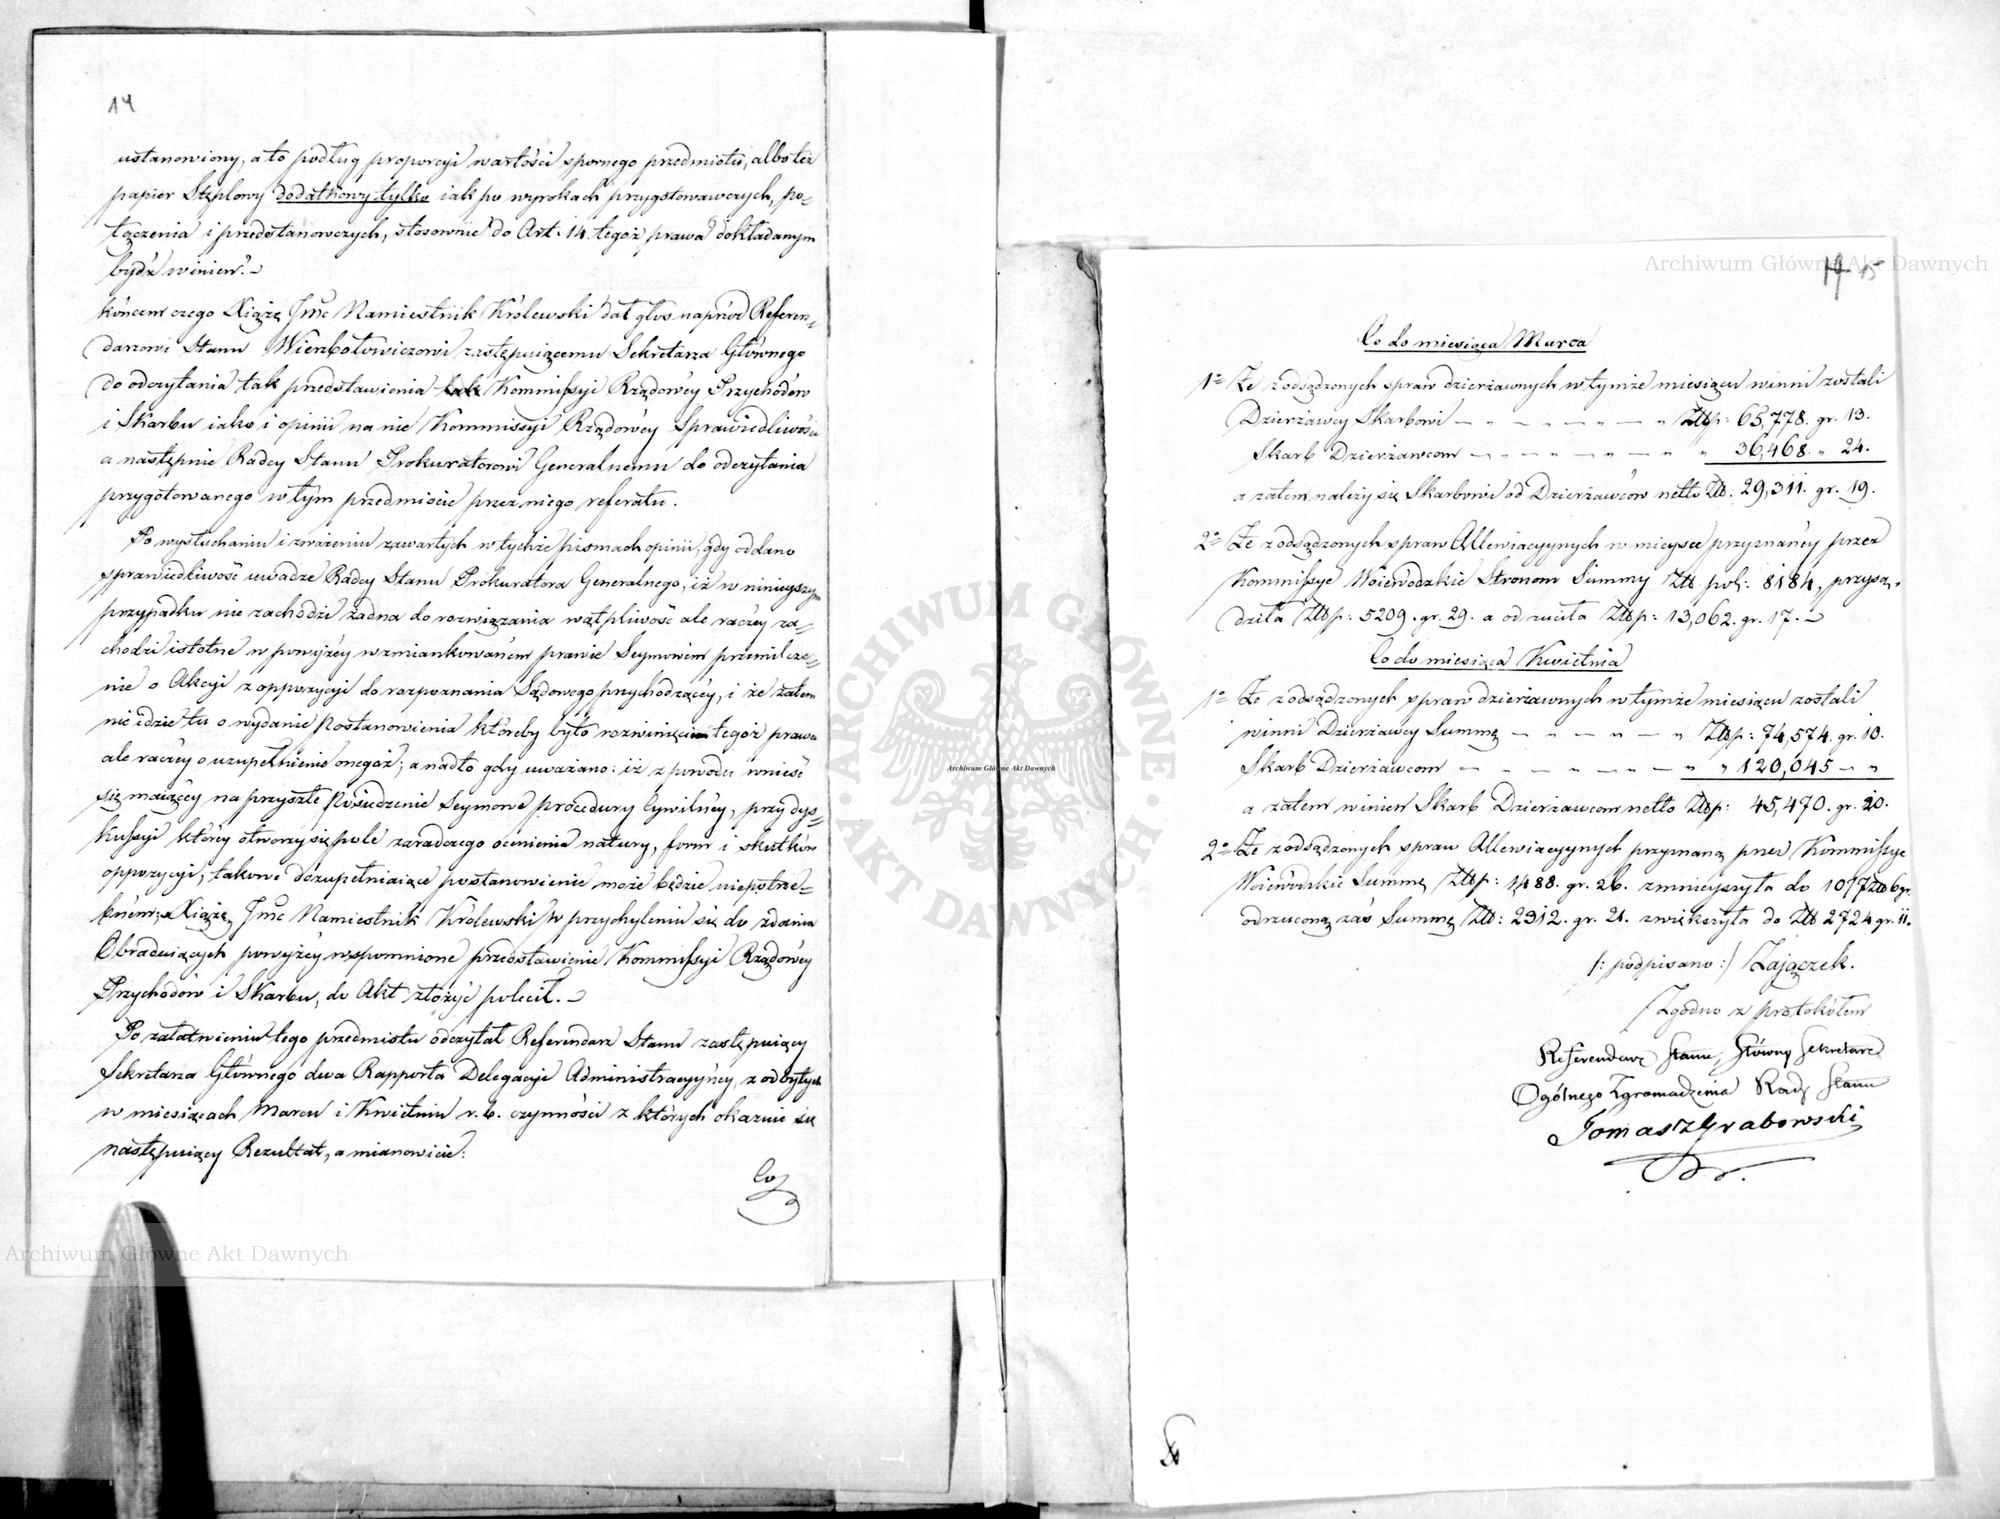 14
ustanowiony, a to podług proporcyi wartości spornego przedmiotu, albo też
papier Stęplowy dodatkowy tylko iak po wyrokach przygotowawczych, po-
łączenia i przedstanowczych, stosownie do Art: 14. tegoż prawa dokładanym
bydź winien?
końcem czego Xiążę Jmć Namiestnik Królewski dał głos naprzód Referen-
darzowi Stanu Wierzbołowiczowi zastępuiącemu Sekretarza Głównego
do odczytania tak przedstawienia Kommissyi Rządowéy Przychodów
i Skarbu iako i opinii na nie Kommissyi Rządowéy Sprawiedliwości
a następnie Radcy Stanu Prokuratorowi Generalnemu do odczytania
przygotowanego w tym przedmiocie przez niego referatu.
Po wysłuchaniu i zważeniu zawartych w tychże pismach opinii, gdy oddano
sprawiedliwość uwadze Radcy Stanu Prokuratora Generalnego, iż w ninieyszym
przypadku nie zachodzi żadna do rozwiązania wątpliwość ale raczéy za-
chodzi istotne w powyżéy wzmiankowaném prawie Seymowém przemilcze-
nie o Akcyi z oppozycyi do rozpoznania Sądowego przychodzącéy, i że zatem
nie idzie tu o wydanie Postanowienia któreby było rozwinięciem tegoż prawa
ale raczéy o uzupełnienie onegoż; a nadto gdy uważano: iż z powodu wnieść
się maiącéy na przyszłe Posiedzenie Seymowe procedury Cywilnéy, przy dys-
kussyi któréy otworzy się pole zaradczego ocenienia natury, form i skutków
oppozycyi, takowe dozupełniaiące postanowienie może będzie niepotrze-
bném; Xiążę Jmć Namiestnik Królewski w przychyleniu się do zdania
Obraduiących powyżéy wspomnione przedstawienie Kommissyi Rządowéy
Przychodów i Skarbu, do Akt złożyć polecił.
Po załatwieniu tego przedmiotu odczytał Referendarz Stanu zastępuiący
Sekretarza Głównego dwa Rapporta Delegacyi Administracyynéy z odbytych
w miesiącach Marcu i Kwietniu r. b. czynności z których okazuie się
następuiący Rezultat, a mianowicie:
Co
14 15
Co do miesiąca Marca
1º Że z odsądzonych spraw dzierżawnych w tymże miesiącu winni zostali
Dzierżawcy Skarbowi - - - - - - - Złłp: 65,778. gr. 13.
Skarb Dzierżawcom - - - - - - - 36,468. " 24.
a zatem należy się Skarbowi od Dzierżawców netto Złł. 29,311. gr. 19.
2º Że z odsądzonych spraw Allewiacyynych w mieysce przyznanéy przez
Kommissye Woiewódzkie Stronom Summy Złł pol: 8184, przysą-
dziła Złłp: 5209. gr. 29. a odrzuciła Złłp: 13,062. gr. 17.
Co do miesiąca Kwietnia
1º Że z odsądzonych spraw dzierżawnych w tymże miesiącu zostali
winni Dzierżawcy Summę - - - - - - Złłp: 74,574. gr. 10.
Skarb Dzierżawcom - - - - - - - - " 120,045 - "
a zatem winien Skarb Dzierżawcom netto Złłp: 45,470. gr. 20.
2º Że z odsądzonych spraw Allewiacyynych przyznaną przez Kommissye
Woiewódzkie Summę Złłp: 1488. gr. 26. zmnieyszyła do 1097 złł 6 gr.
odrzuconą zaś Summę Złł: 2312. gr. 21. zwiększyła do Złł 2724 gr. 11.
/: podpisano :/ Zajączek.
Zgodno z protokółem
Referendarz Stanu, Główny Sekretarz
Ogólnego Zgromadzenia Rady Stanu
Tomasz Grabowski
Archiwum Główne Akt Dawnych
Archiwum Główne Akt Dawnych
Archiwum Główne Akt Dawnych
ARCHIWUM GŁÓWNE AKT DAWNYCH